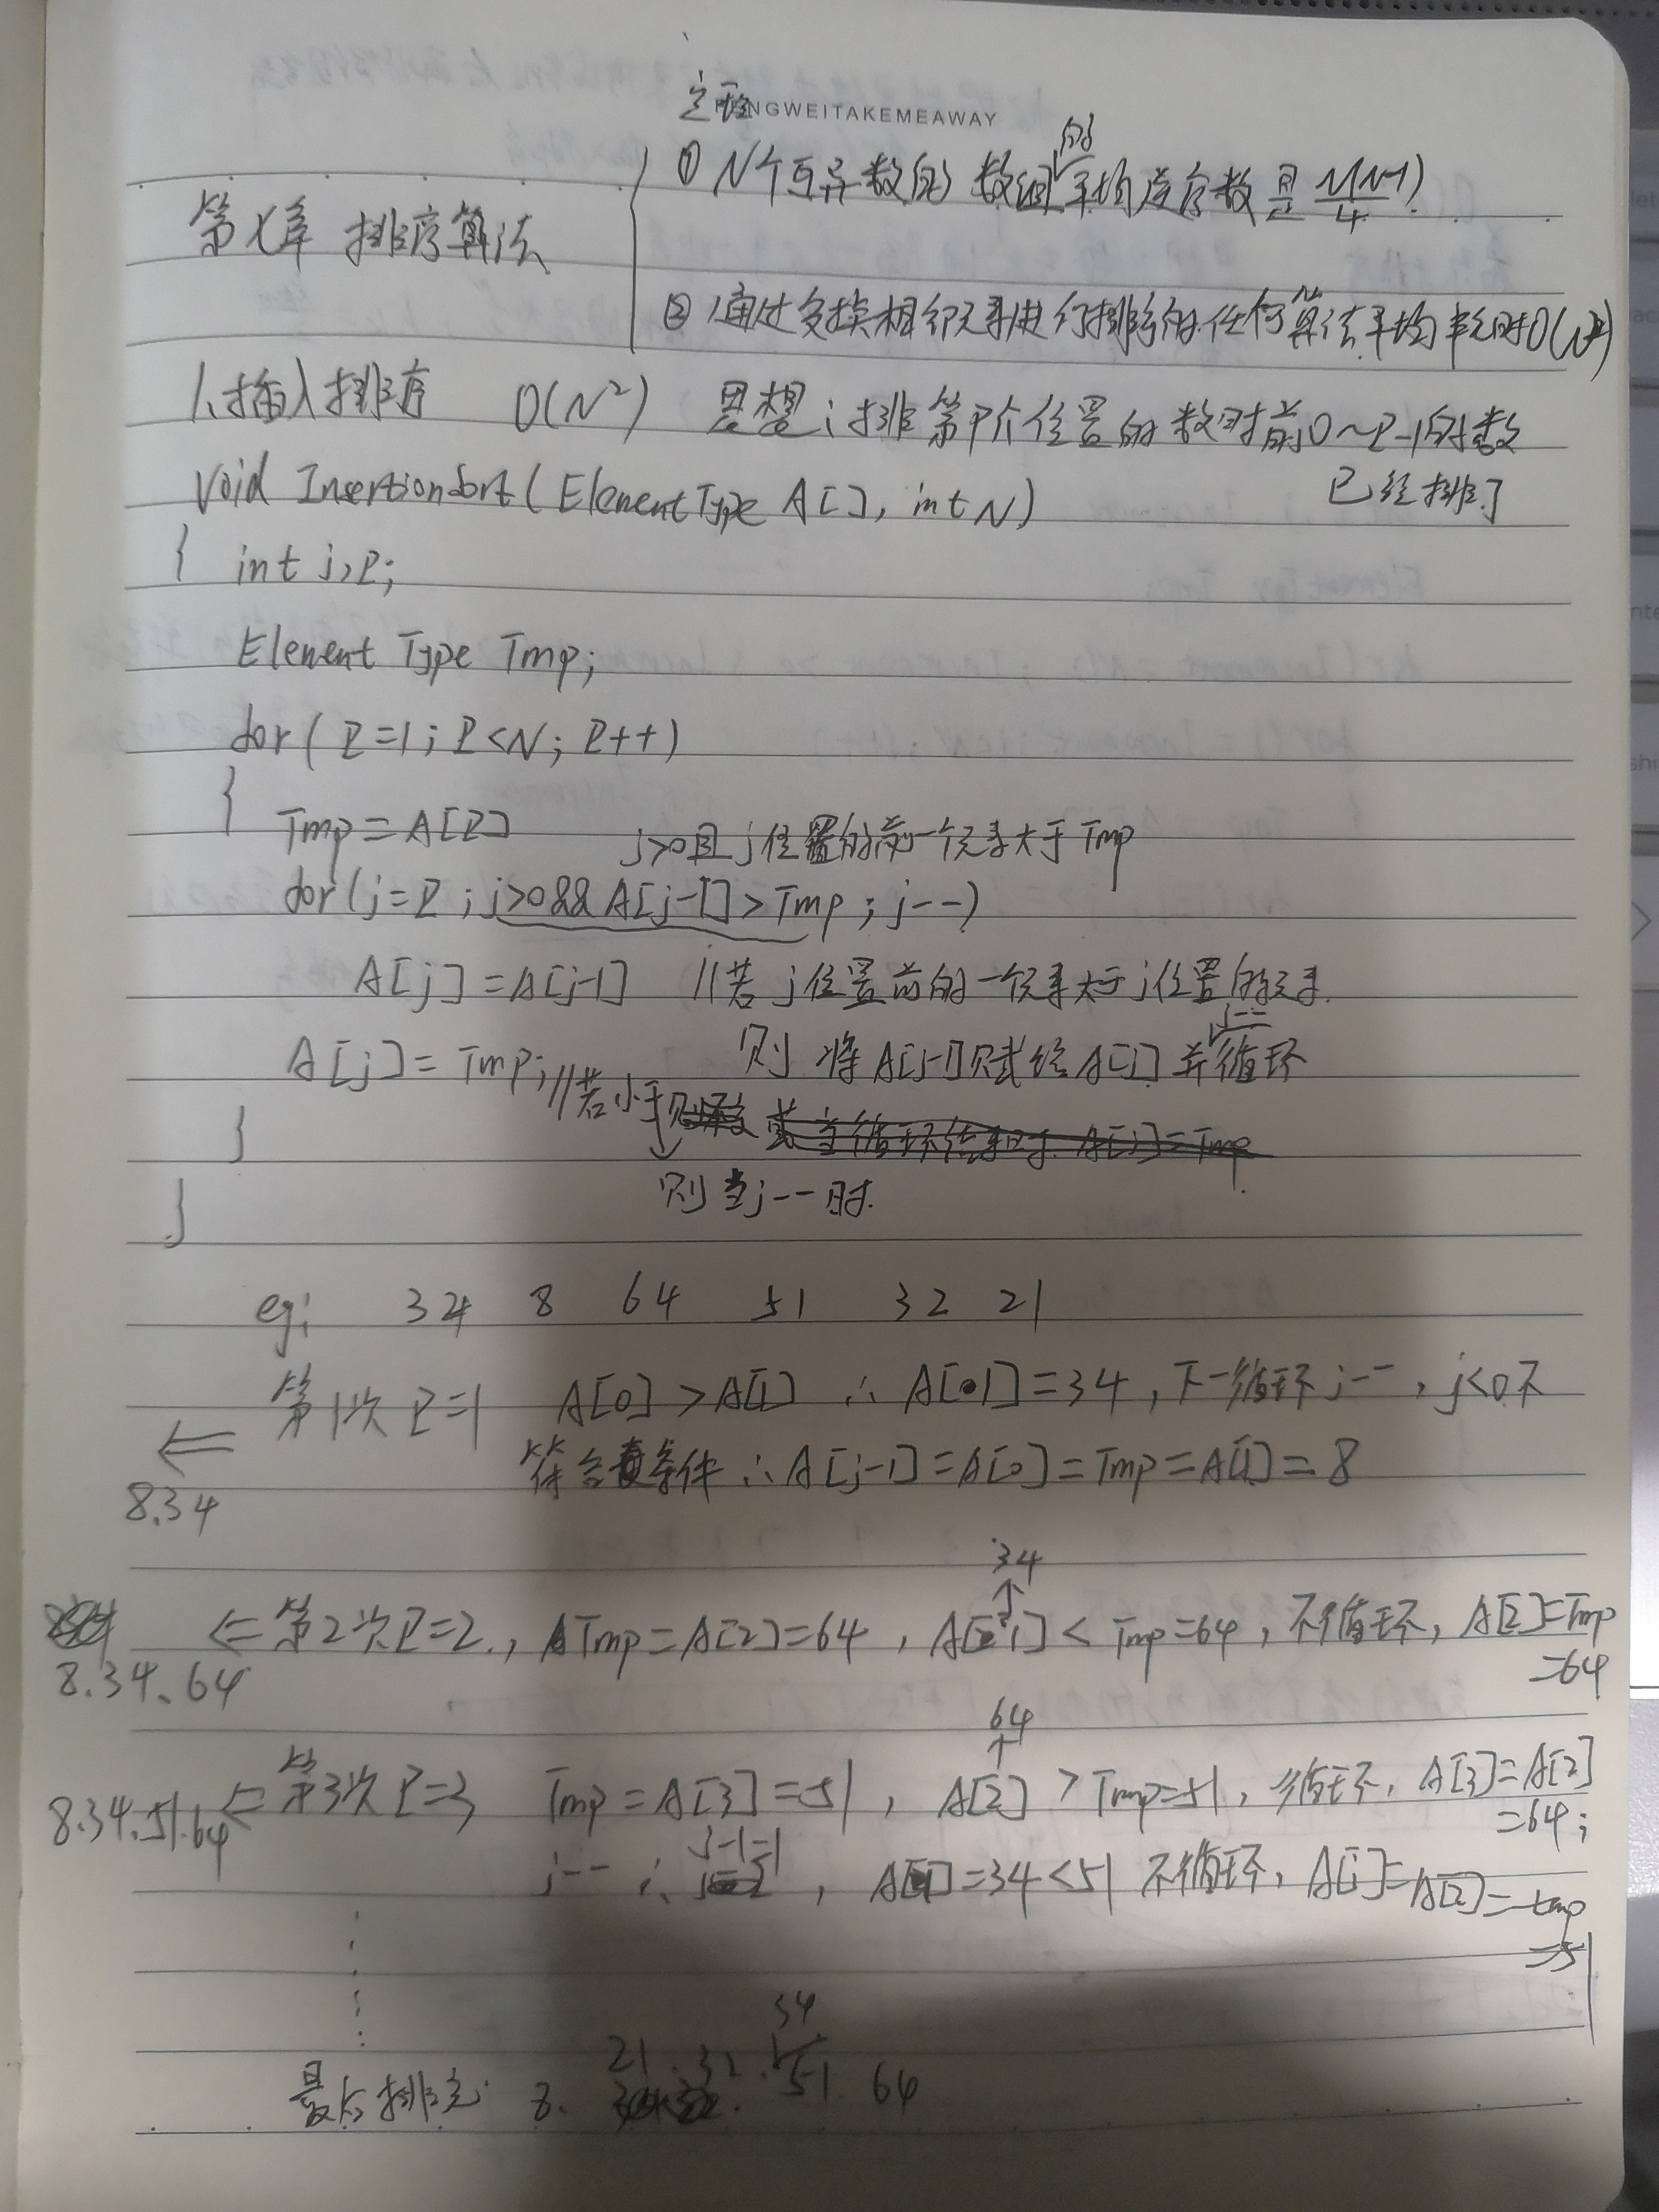 定理
NGWEITAKEMEAWAY
① N个互异数的数组的平均逆序数是 N(N-1)/4
第七章 排序算法
② 通过交换相邻元素进行排序的任何算法平均 时O(N²)
1、插入排序 O(N²) 思想: 排第P个位置的数时前0~P-1的数
已经排了
void InsertionSort(ElementType A[], int N)
{ int j,P;
ElementType Tmp;
for(P=1;P<N;P++)
{
Tmp=A[P]
j>0且j位置的前一个元素大于Tmp
for(j=P;j>0&&A[j-1]>Tmp;j--)
A[j]=A[j-1] //若j位置前的一个元素大于j位置的元素.
则 将A[j-1]赋给A[j] 并j--循环
A[j]=Tmp;//若小于
则当j--时.
}
}
eg: 34 8 64 51 32 21
第1次 P=1 A[0]>A[1] ∴ A[1]=34,下一循环j--,j<0不
符合条件 ∴A[j-1]=A[0]=Tmp=A[1]=8
⇐
8.34
34
↑
⇐第2次P=2., Tmp=A[2]=64, A[2-1]<Tmp=64,不循环,A[2]=Tmp
=64
8.34.64
64
↑
8.34.51.64⇐第3次P=3 Tmp=A[3]=51, A[2]>Tmp=51,循环,A[3]=A[2]
=64;
j-- ∴ j-1=1, A[1]=34<51 不循环,A[j]=A[2]=tmp
=51
最后排完 8. 21.32.34 51.64